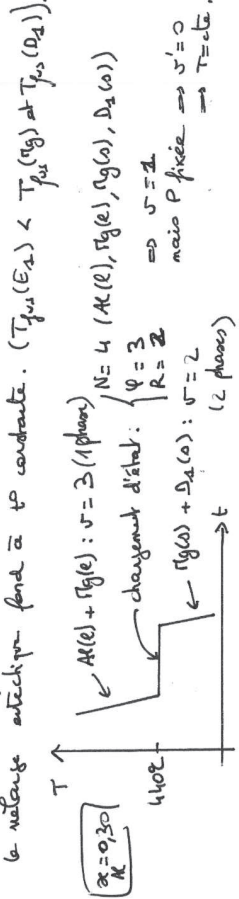 le mélange eutectique fond à t° constante. (T_fus(E_1) < T_fus(Mg) et T_fus(D_1)).
T
x_Al = 0,30
Al(l) + Mg(l) : v = 3 (1 phase)
changement d'état :
N = 4 (Al(l), Mg(l), Mg(s), D_1(s))
φ = 3
R = 2
⇒ v = 1
mais P fixée ⇒ v' = 0
⇒ T = cte.
440°C
Mg(s) + D_1(s) : v = 2
(2 phases)
t